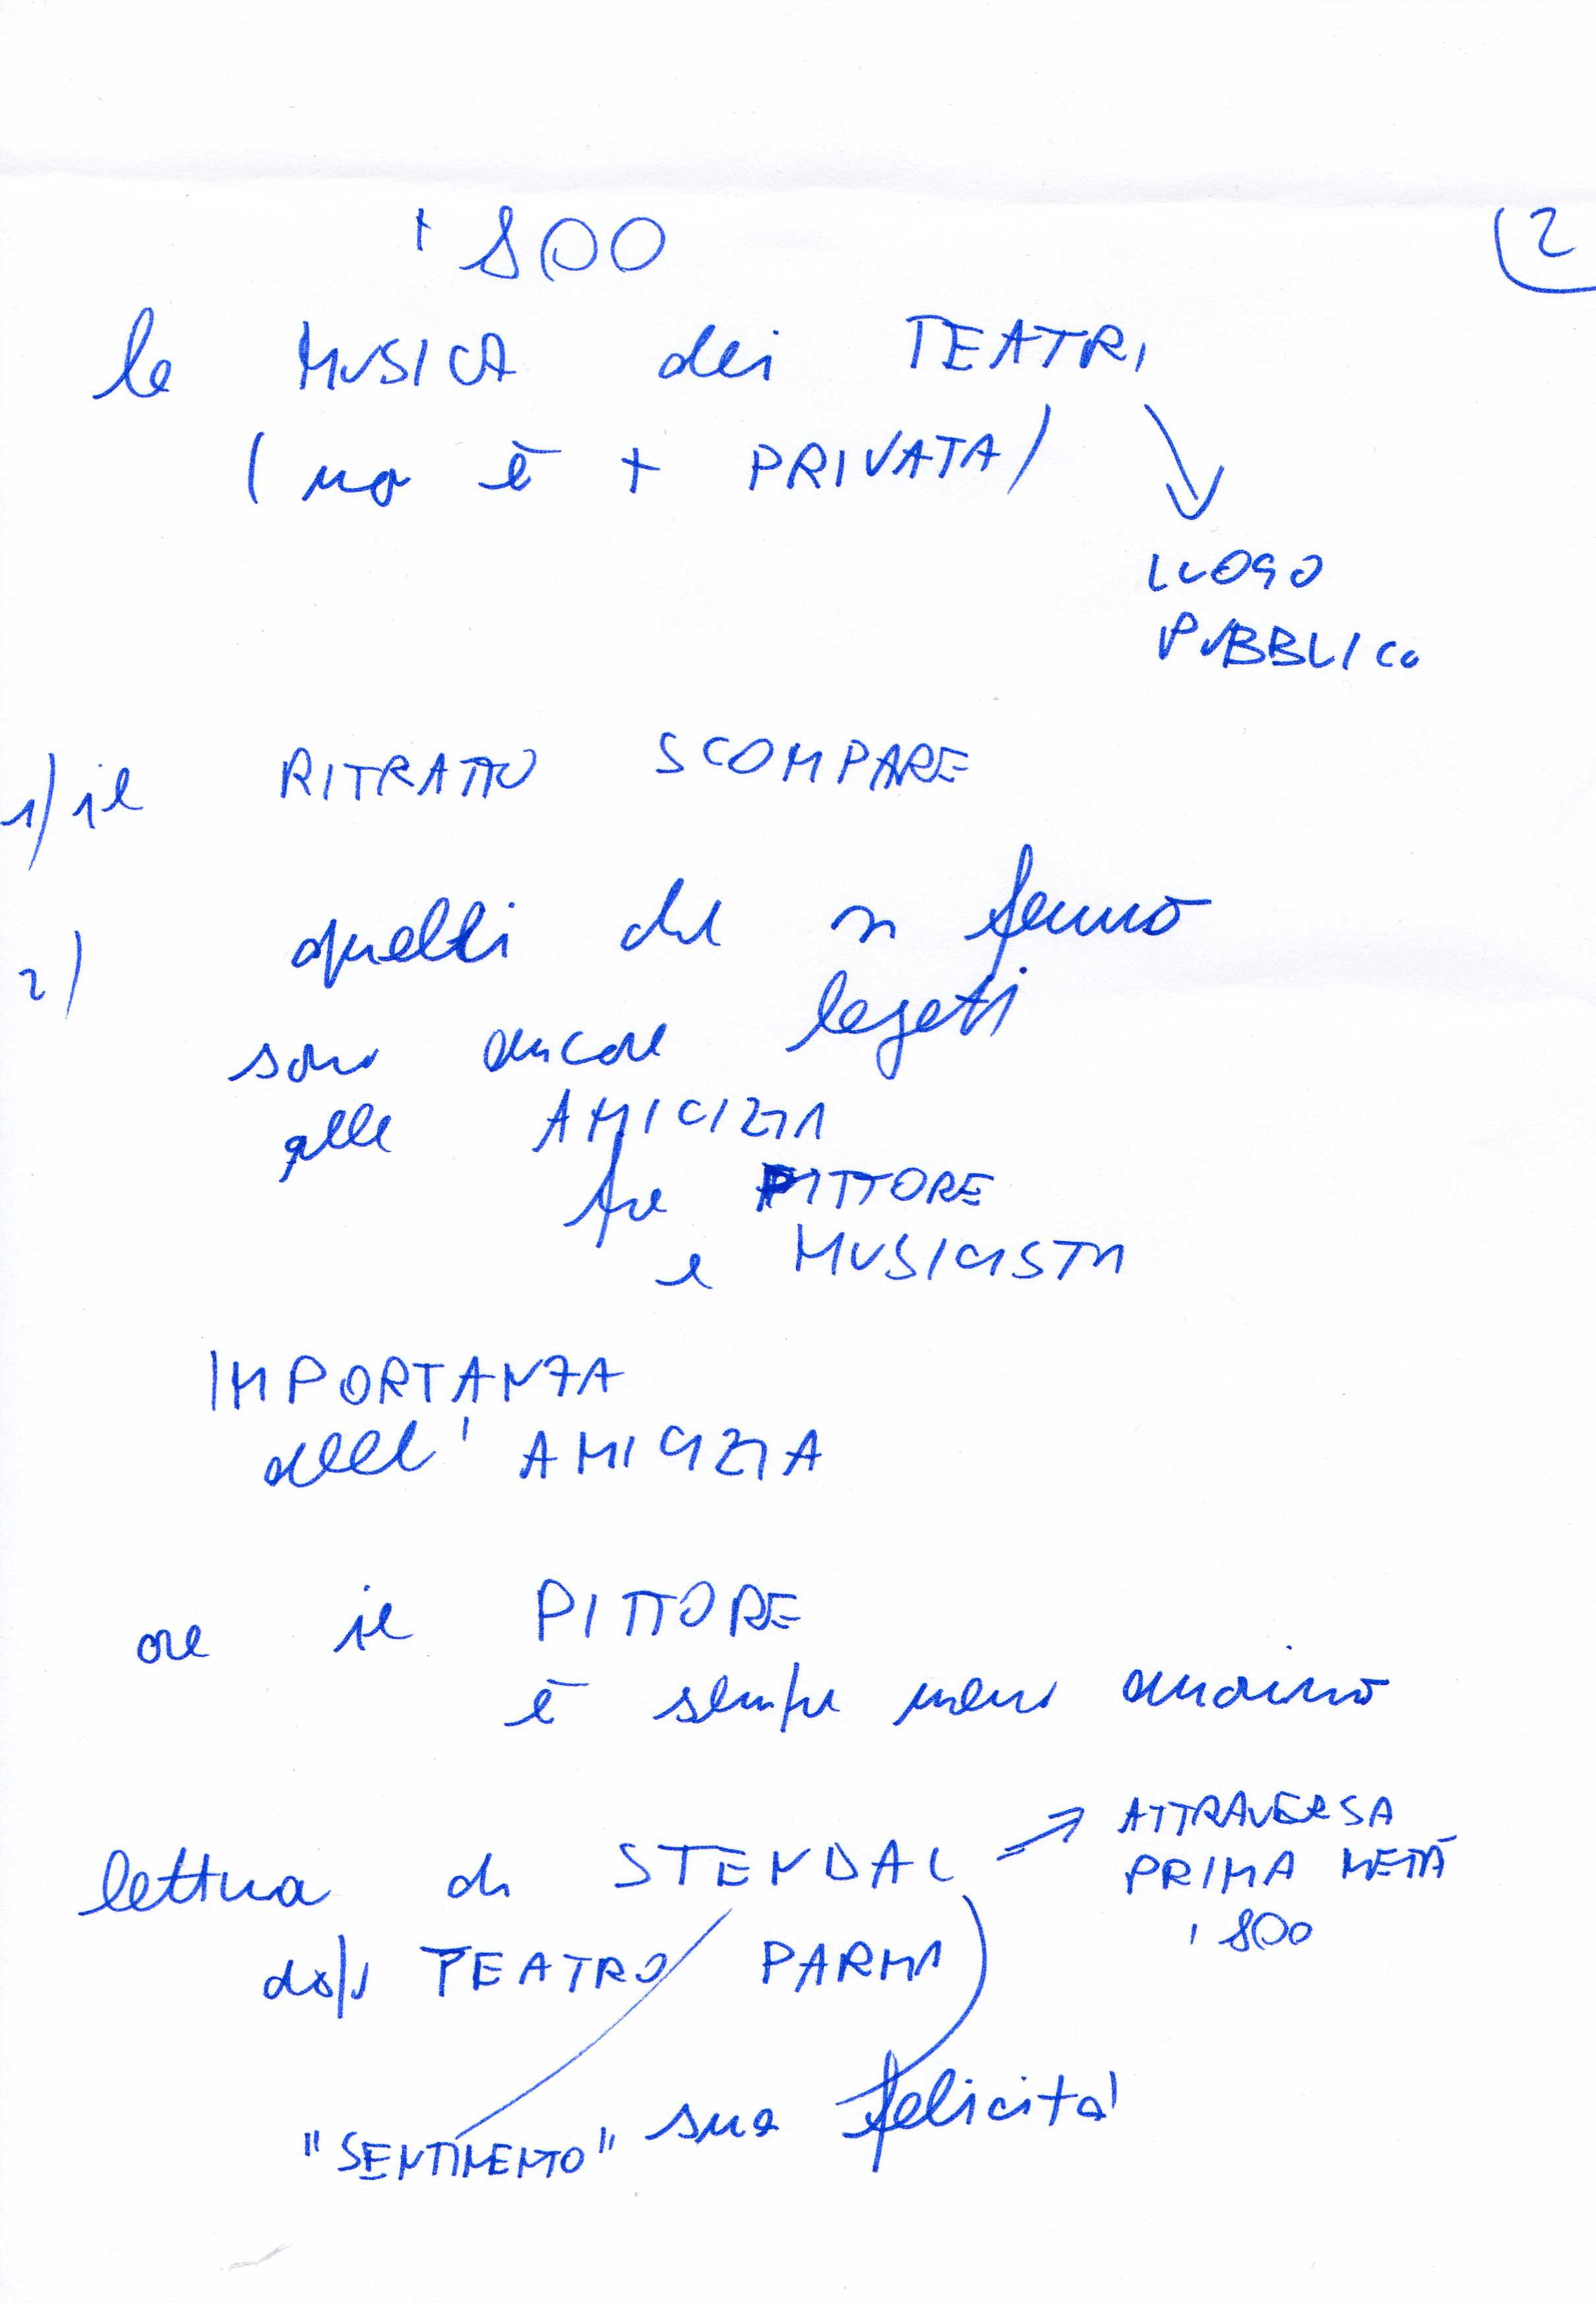 '800
2
la MUSICA dei TEATRI
(no è + PRIVATA)
LUOGO
PUBBLICO
1) il RITRATTO SCOMPARE
2) quelli che si fanno
sono ancora legati
alla AMICIZIA
fra PITTORE
e MUSICISTA
IMPORTANZA
dell'AMICIZIA
ora il PITTORE
è sempre meno
lettura di STENDAL
ATTRAVERSA
PRIMA METÀ
'800
dopo TEATRO PARMA
"SENTIMENTO" sua felicità